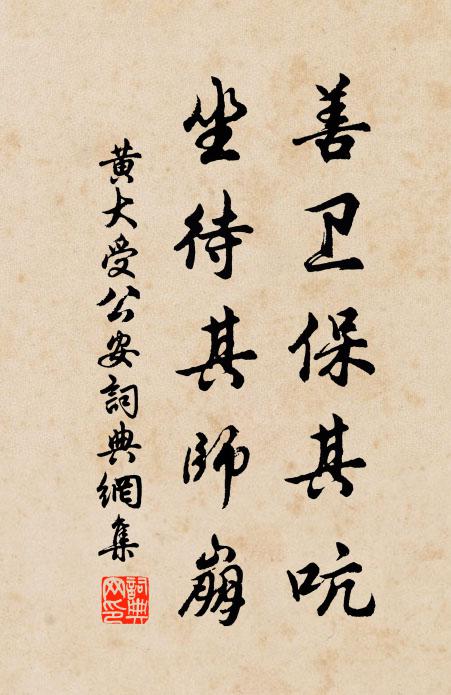 善卫保其吭
坐待其師崩
黄大受公安詞典網集
詞典網印